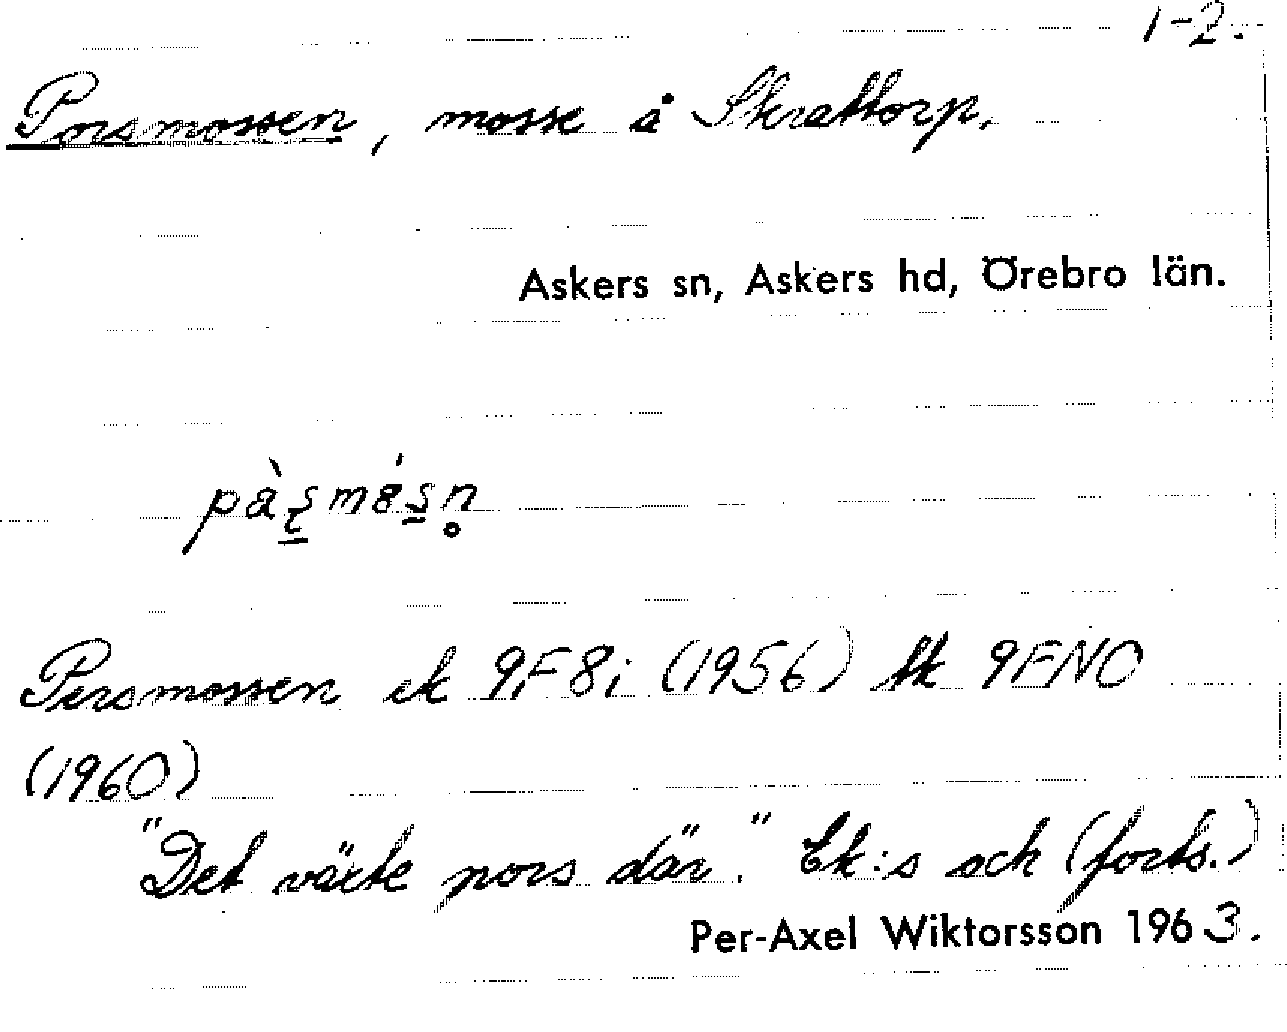 1-2.
Porsmossen, mosse å Skrattorp.
Askers sn, Askers hd, Örebro län.
Persmossen ek 9F8i (1956) tk 9FNO
(1960)
"Det växte pors där." Ek:s och (forts.)
Per-Axel Wiktorsson 1963.